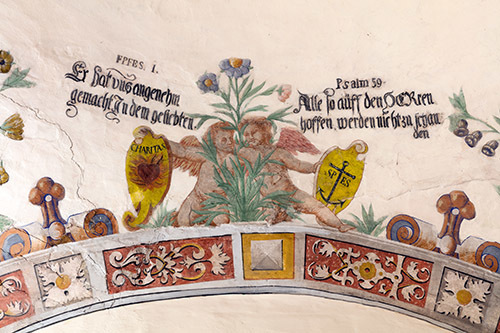 EPHES. I.
Er hat vns angenehm
gemacht, In dem geliebten.
CHARITAS
Psalm 59
Alle so auff den HERren
hoffen, werden nicht zu schan
den
SPES